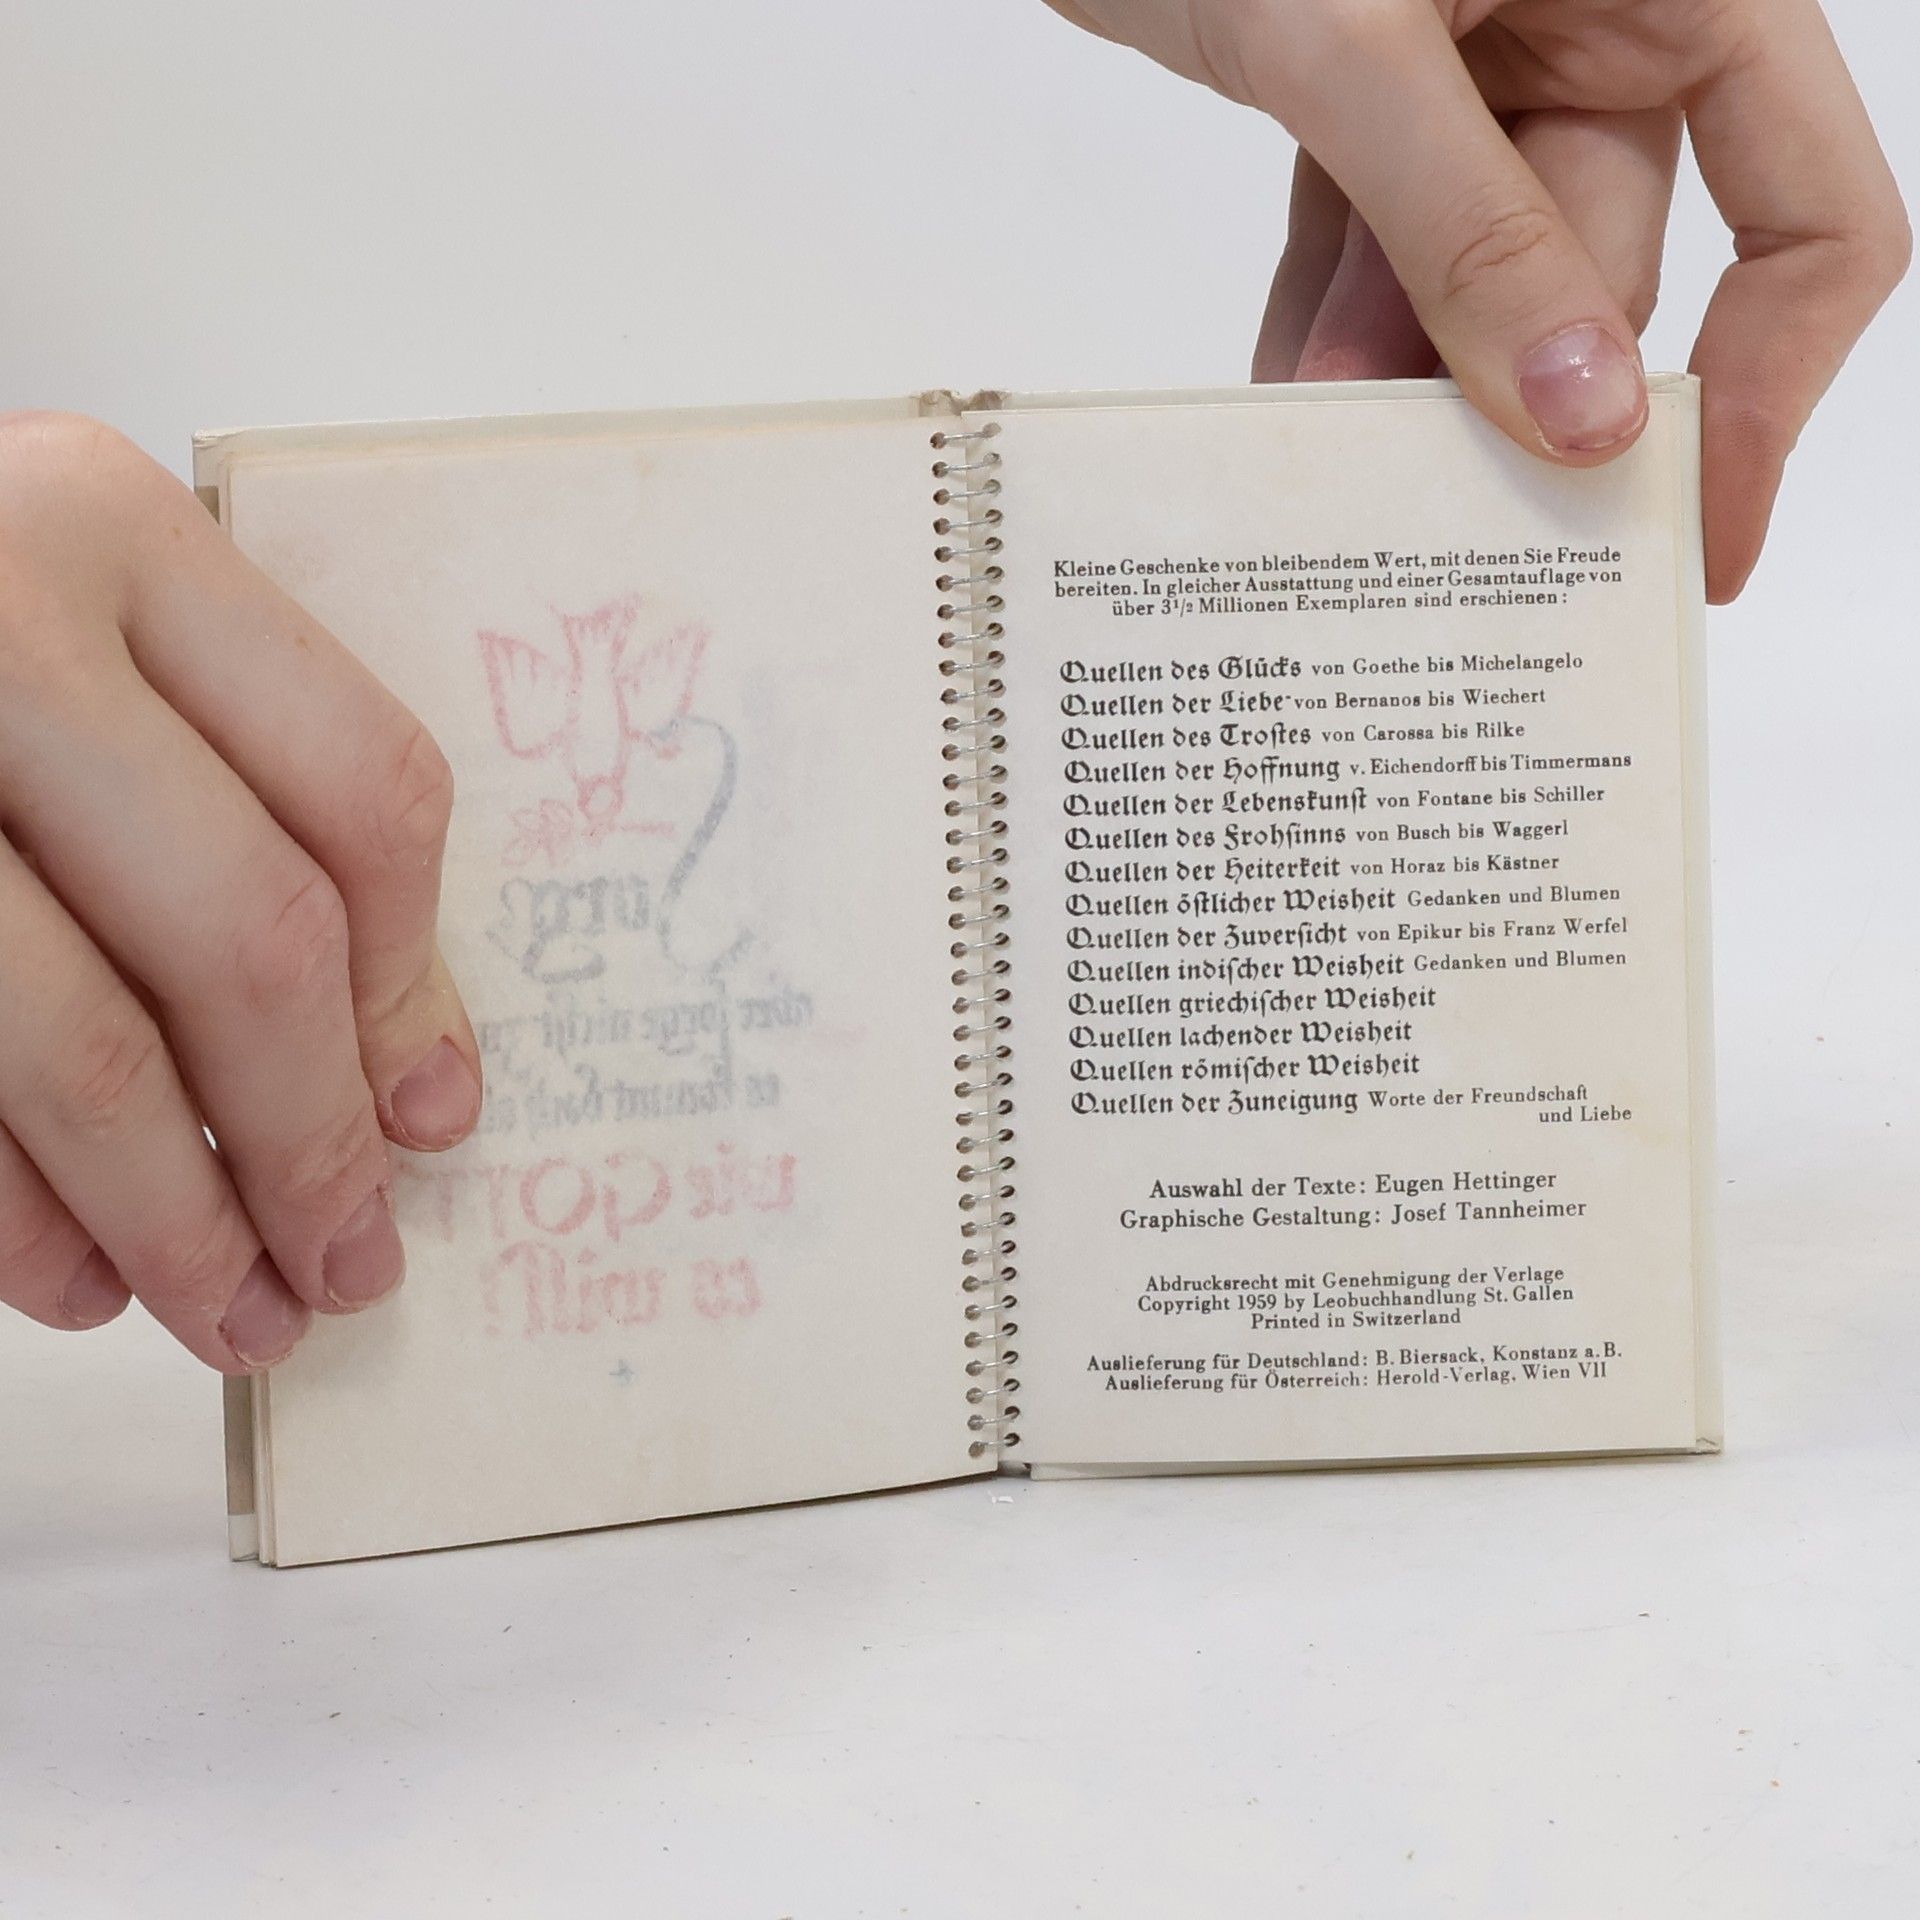 Sorg
aber sorge nicht zu
es kommt doch
wie GOTT
es will!
Kleine Geschenke von bleibendem Wert, mit denen Sie Freude
bereiten. In gleicher Ausstattung und einer Gesamtauflage von
über 3½ Millionen Exemplaren sind erschienen:
Quellen des Glücks von Goethe bis Michelangelo
Quellen der Liebe von Bernanos bis Wiechert
Quellen des Troſtes von Carossa bis Rilke
Quellen der Hoffnung v. Eichendorff bis Timmermans
Quellen der Lebenskunſt von Fontane bis Schiller
Quellen des Frohſinns von Busch bis Waggerl
Quellen der Heiterkeit von Horaz bis Kästner
Quellen öſtlicher Weisheit Gedanken und Blumen
Quellen der Zuverſicht von Epikur bis Franz Werfel
Quellen indiſcher Weisheit Gedanken und Blumen
Quellen griechiſcher Weisheit
Quellen lachender Weisheit
Quellen römiſcher Weisheit
Quellen der Zuneigung Worte der Freundschaft
und Liebe
Auswahl der Texte: Eugen Hettinger
Graphische Gestaltung: Josef Tannheimer
Abdrucksrecht mit Genehmigung der Verlage
Copyright 1959 by Leobuchhandlung St. Gallen
Printed in Switzerland
Auslieferung für Deutschland: B. Biersack, Konstanz a. B.
Auslieferung für Österreich: Herold-Verlag, Wien VII